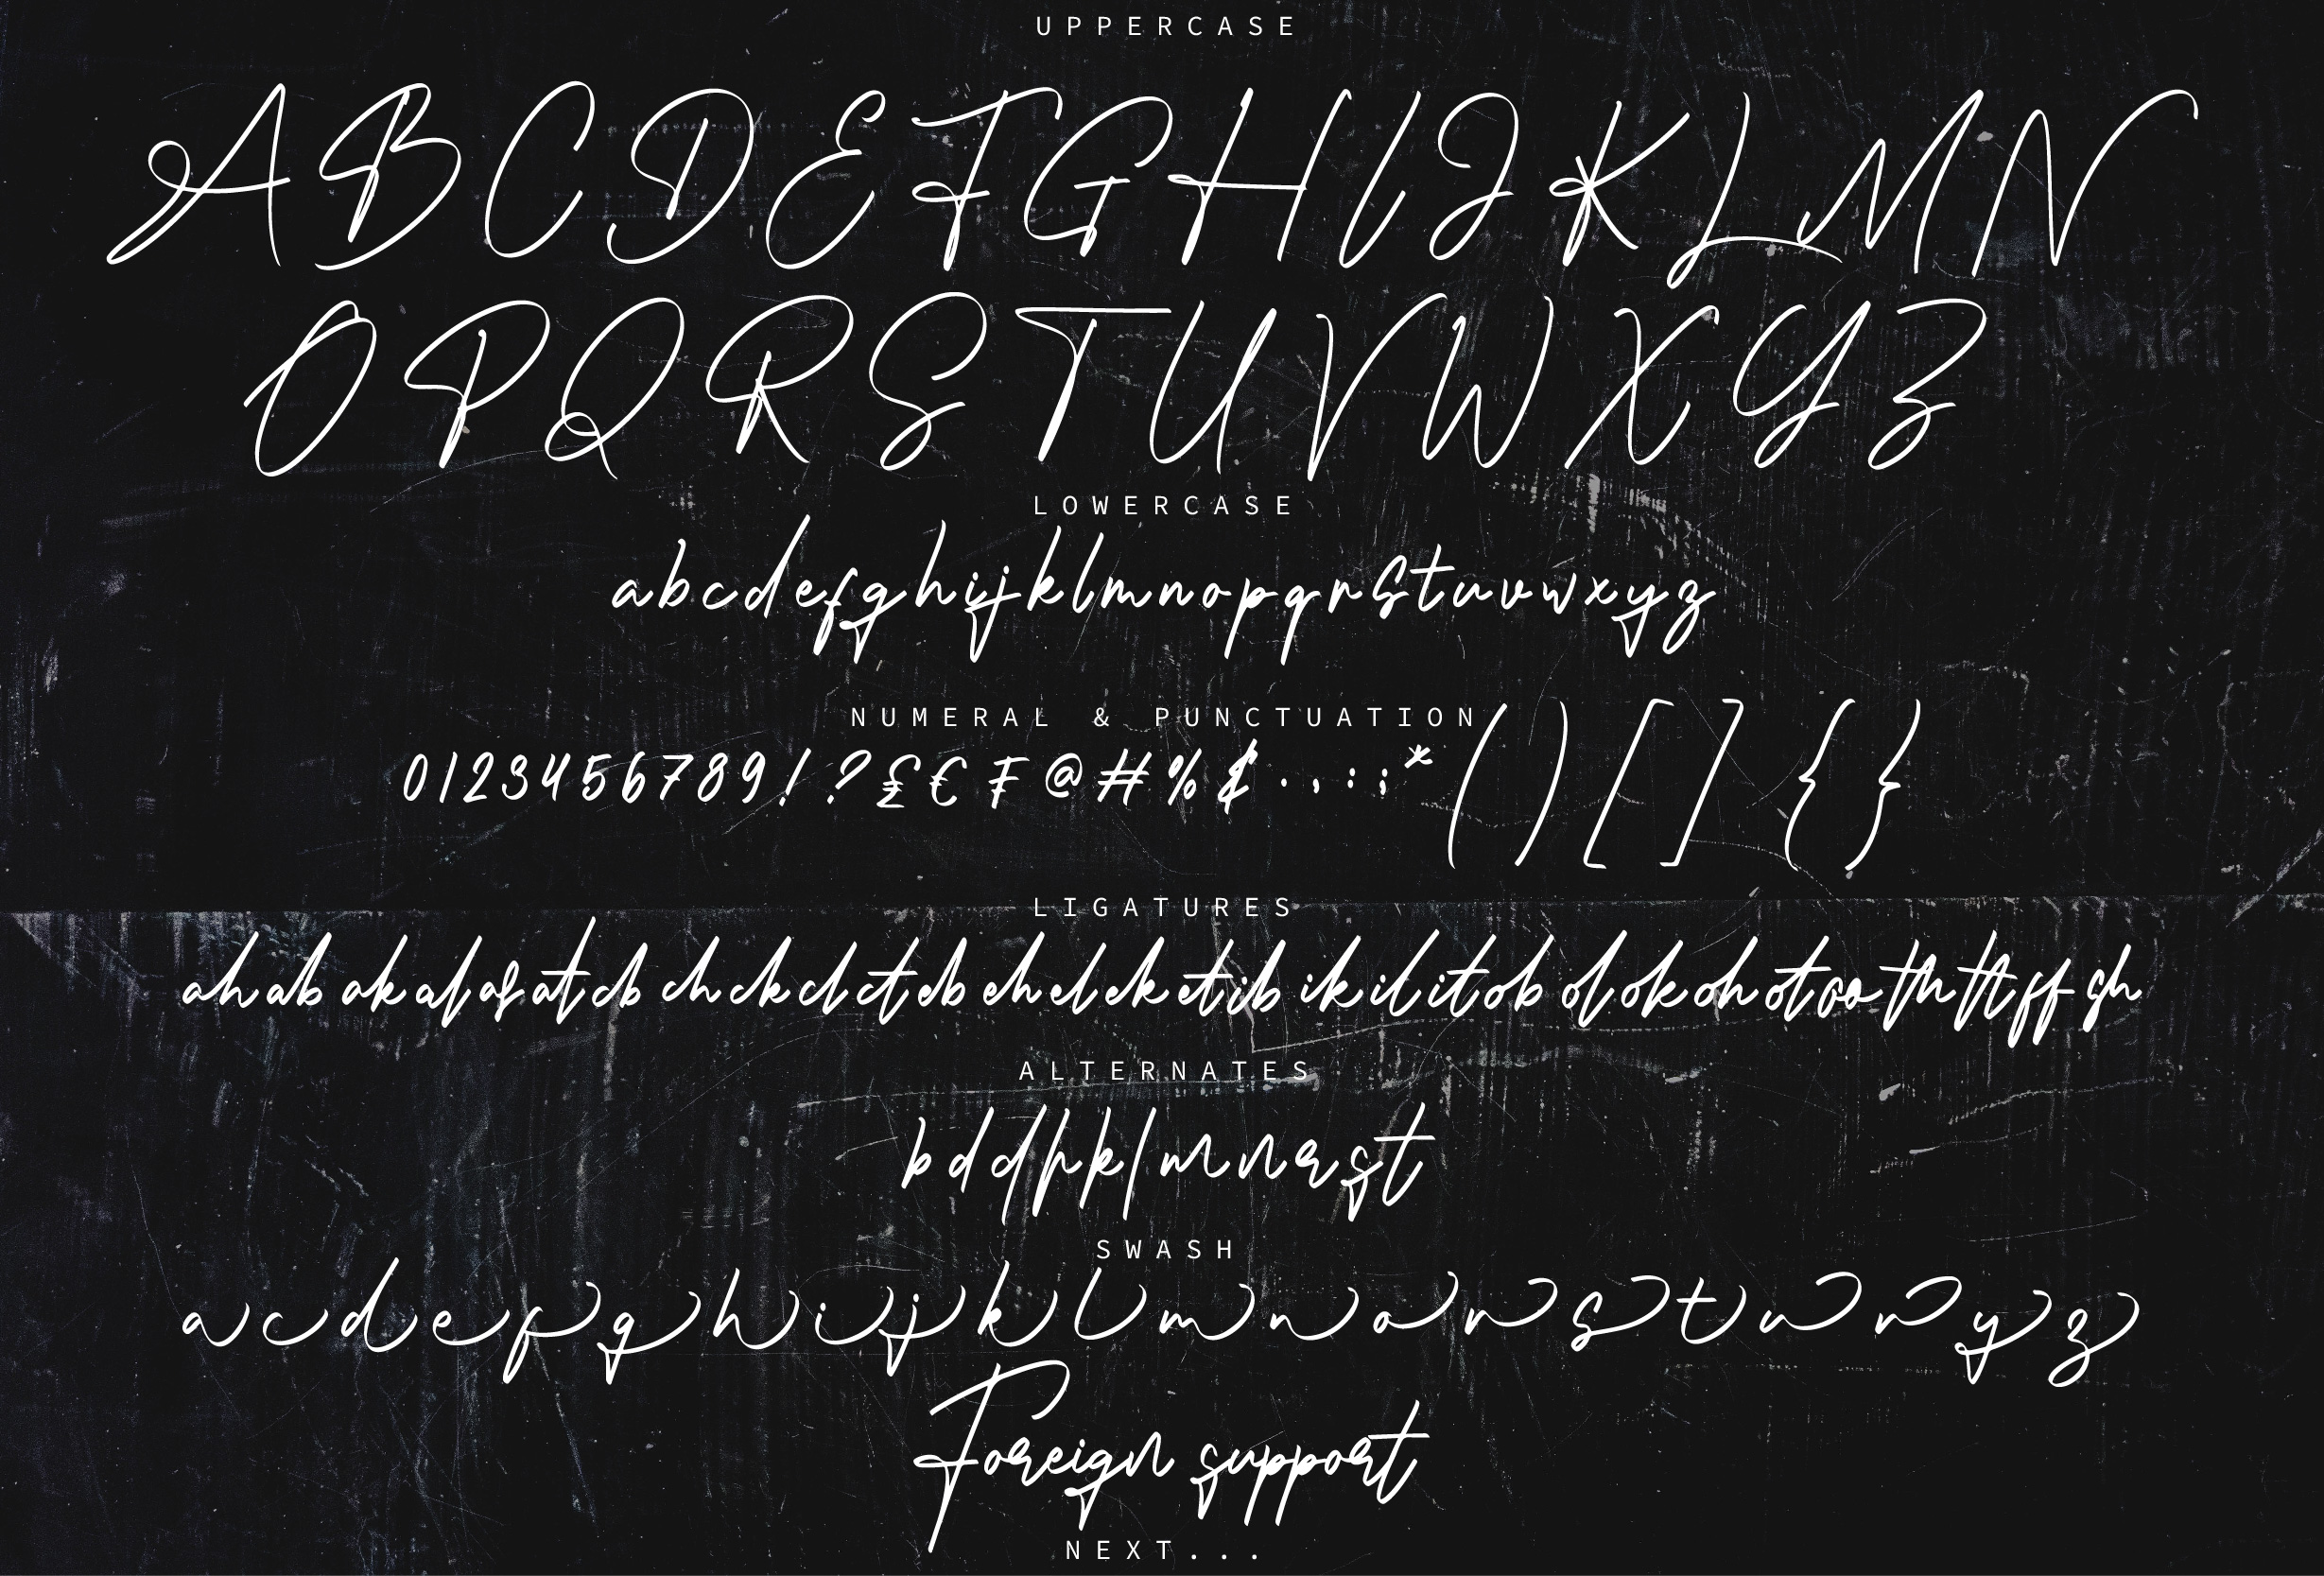 UPPERCASE
A B C D E F G H I J K L M N
O P Q R S T U V W X Y Z
LOWERCASE
a b c d e f g h i j k l m n o p q r s t u v w x y z
NUMERAL & PUNCTUATION
0 1 2 3 4 5 6 7 8 9 ! ? £ € ₣ @ # % & . , : ; * ( ) [ ] { }
LIGATURES
ah ab ak al af at cb ch ck cl ct eb eh el ek et ib ik il it ob ol ok oh ot oo th tt ff sh
ALTERNATES
b d d h k l m n r s t
SWASH
a c d e f g h i j k l m n o r s t u v y z
Foreign support
NEXT...